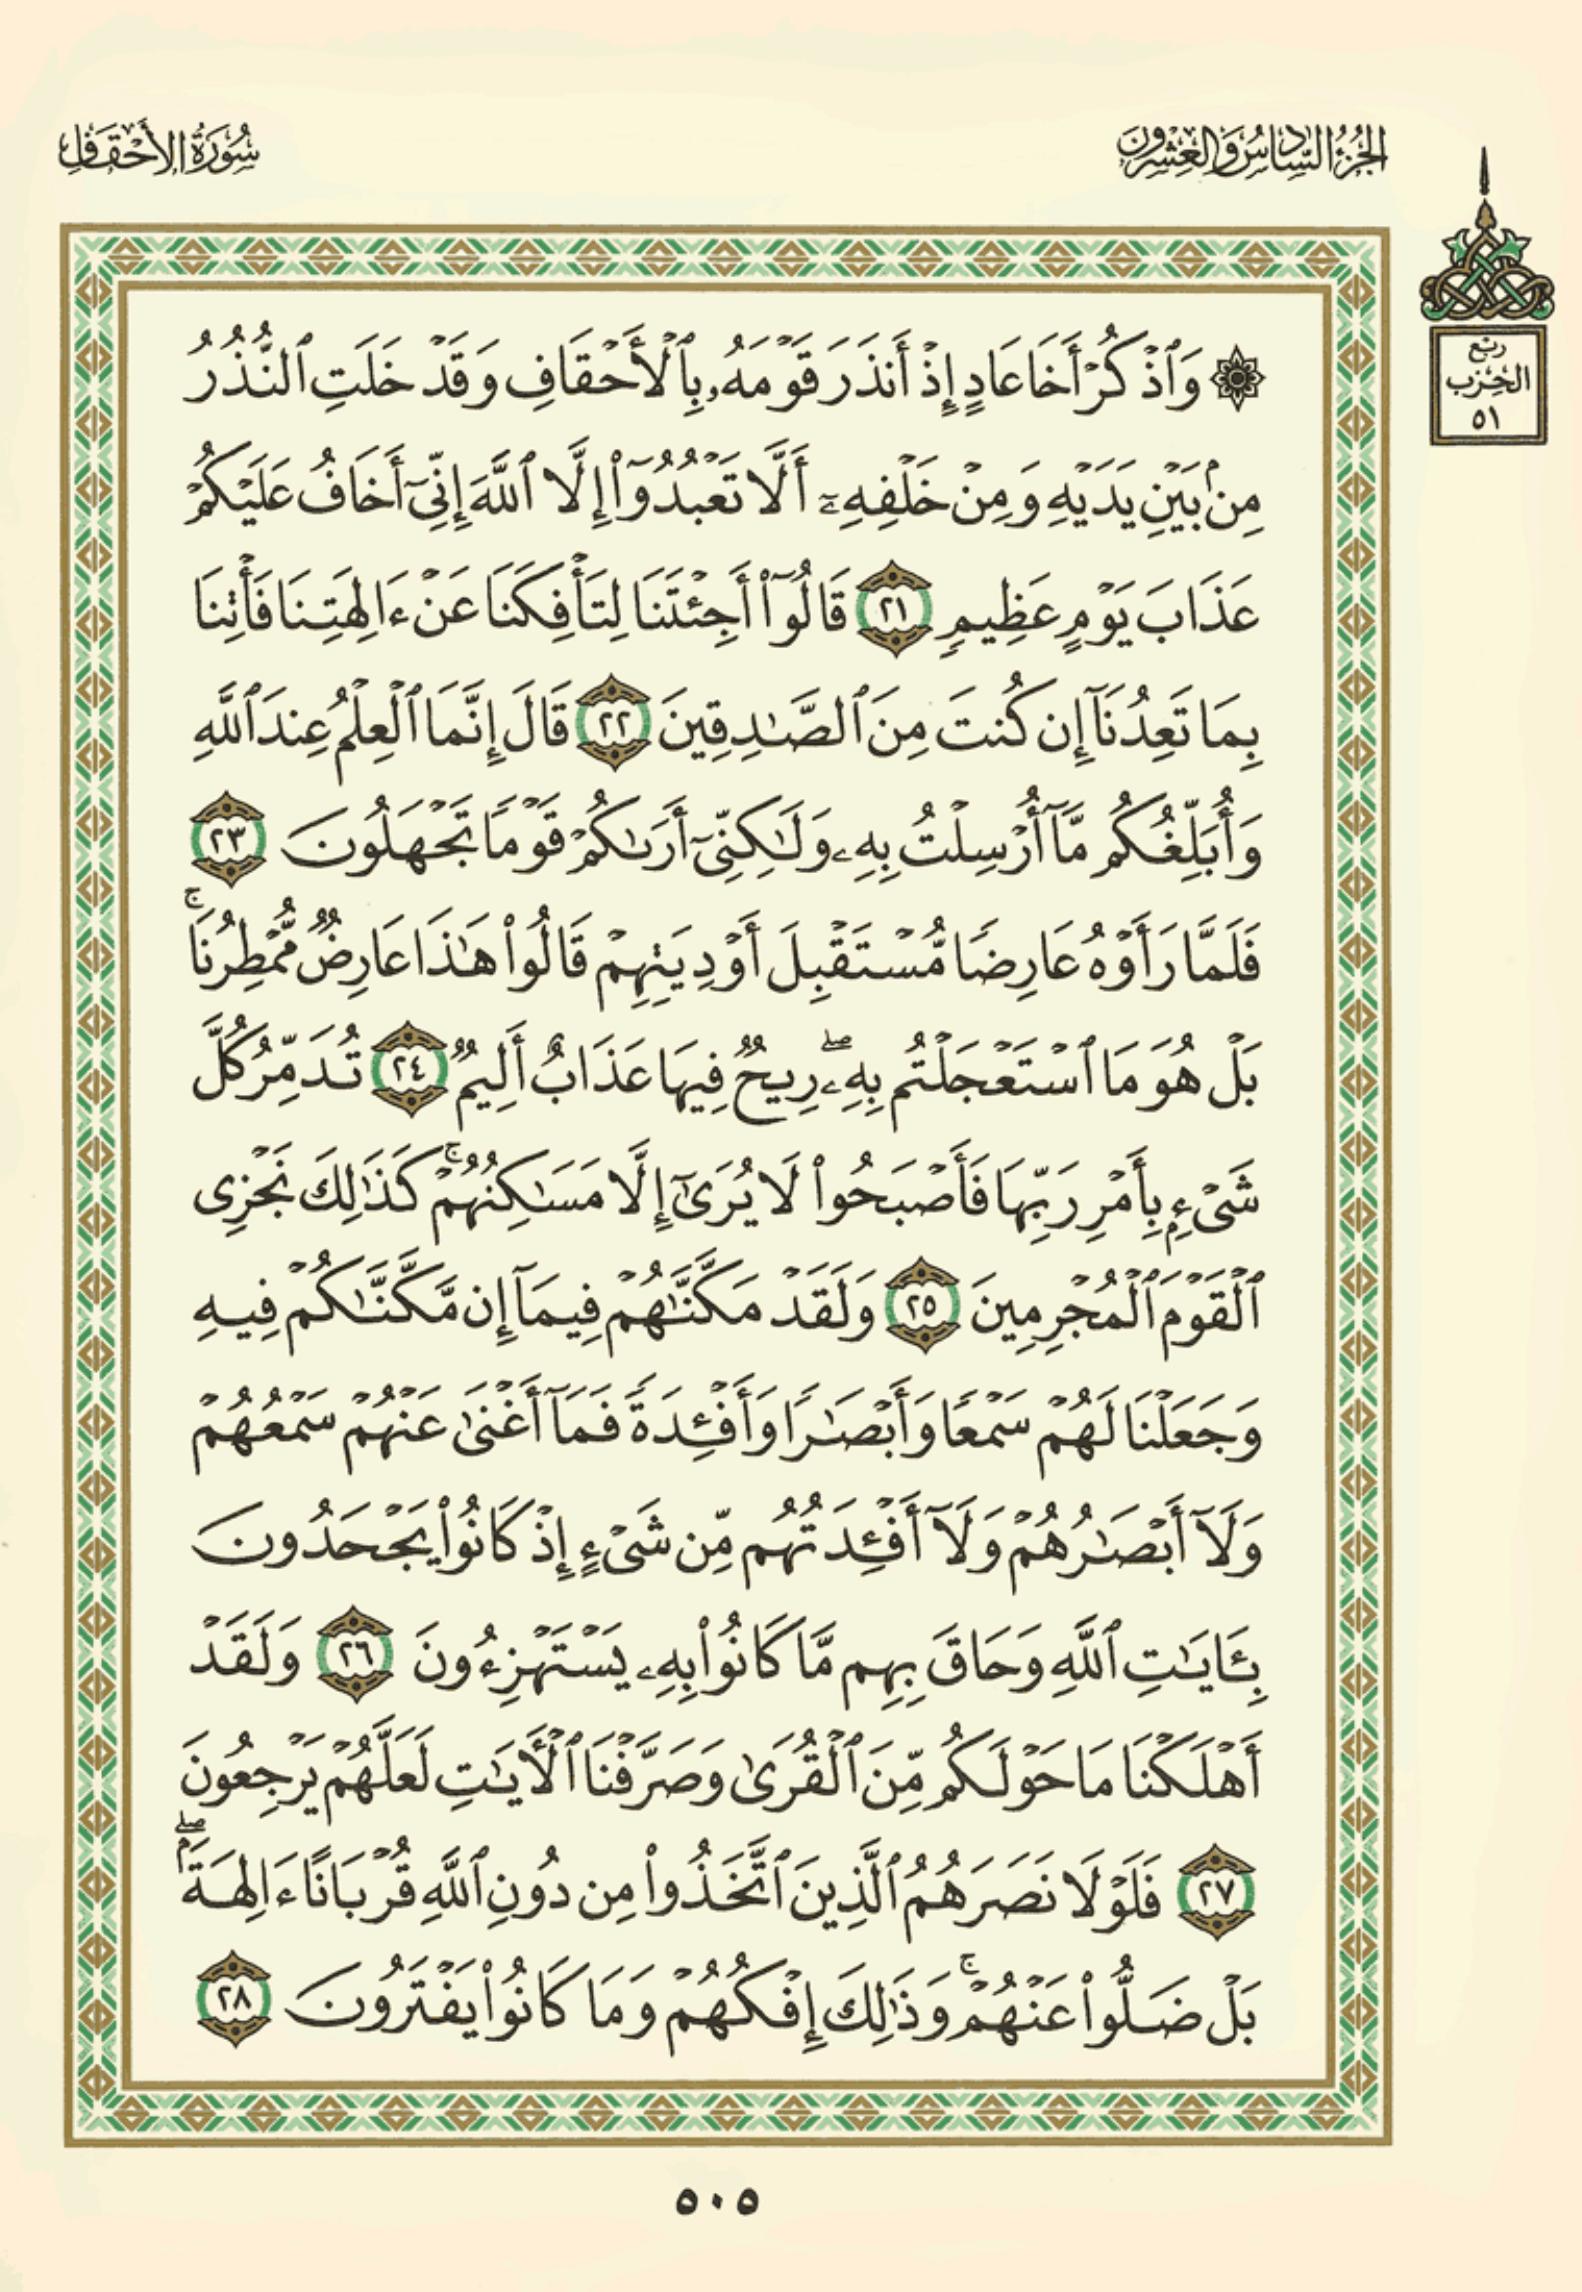 الجزء السادس والعشرون
سورة الأحقاف
ربع
الحزب
٥١
۞ وَٱذۡكُرۡ أَخَا عَادٍ إِذۡ أَنذَرَ قَوۡمَهُۥ بِٱلۡأَحۡقَافِ وَقَدۡ خَلَتِ ٱلنُّذُرُ
مِنۢ بَيۡنِ يَدَيۡهِ وَمِنۡ خَلۡفِهِۦٓ أَلَّا تَعۡبُدُوٓاْ إِلَّا ٱللَّهَ إِنِّيٓ أَخَافُ عَلَيۡكُمۡ
عَذَابَ يَوۡمٍ عَظِيمٖ ٢١ قَالُوٓاْ أَجِئۡتَنَا لِتَأۡفِكَنَا عَنۡ ءَالِهَتِنَا فَأۡتِنَا
بِمَا تَعِدُنَآ إِن كُنتَ مِنَ ٱلصَّٰدِقِينَ ٢٢ قَالَ إِنَّمَا ٱلۡعِلۡمُ عِندَ ٱللَّهِ
وَأُبَلِّغُكُم مَّآ أُرۡسِلۡتُ بِهِۦ وَلَٰكِنِّيٓ أَرَىٰكُمۡ قَوۡمٗا تَجۡهَلُونَ ٢٣
فَلَمَّا رَأَوۡهُ عَارِضٗا مُّسۡتَقۡبِلَ أَوۡدِيَتِهِمۡ قَالُواْ هَٰذَا عَارِضٞ مُّمۡطِرُنَاۚ
بَلۡ هُوَ مَا ٱسۡتَعۡجَلۡتُم بِهِۦۖ رِيحٞ فِيهَا عَذَابٌ أَلِيمٞ ٢٤ تُدَمِّرُ كُلَّ
شَيۡءِۭ بِأَمۡرِ رَبِّهَا فَأَصۡبَحُواْ لَا يُرَىٰٓ إِلَّا مَسَٰكِنُهُمۡۚ كَذَٰلِكَ نَجۡزِي
ٱلۡقَوۡمَ ٱلۡمُجۡرِمِينَ ٢٥ وَلَقَدۡ مَكَّنَّٰهُمۡ فِيمَآ إِن مَّكَّنَّٰكُمۡ فِيهِ
وَجَعَلۡنَا لَهُمۡ سَمۡعٗا وَأَبۡصَٰرٗا وَأَفۡـِٔدَةٗ فَمَآ أَغۡنَىٰ عَنۡهُمۡ سَمۡعُهُمۡ
وَلَآ أَبۡصَٰرُهُمۡ وَلَآ أَفۡـِٔدَتُهُم مِّن شَيۡءٍ إِذۡ كَانُواْ يَجۡحَدُونَ
بِـَٔايَٰتِ ٱللَّهِ وَحَاقَ بِهِم مَّا كَانُواْ بِهِۦ يَسۡتَهۡزِءُونَ ٢٦ وَلَقَدۡ
أَهۡلَكۡنَا مَا حَوۡلَكُم مِّنَ ٱلۡقُرَىٰ وَصَرَّفۡنَا ٱلۡأٓيَٰتِ لَعَلَّهُمۡ يَرۡجِعُونَ
٢٧ فَلَوۡلَا نَصَرَهُمُ ٱلَّذِينَ ٱتَّخَذُواْ مِن دُونِ ٱللَّهِ قُرۡبَانًا ءَالِهَةَۢۖ
بَلۡ ضَلُّواْ عَنۡهُمۡۚ وَذَٰلِكَ إِفۡكُهُمۡ وَمَا كَانُواْ يَفۡتَرُونَ ٢٨
٥٠٥